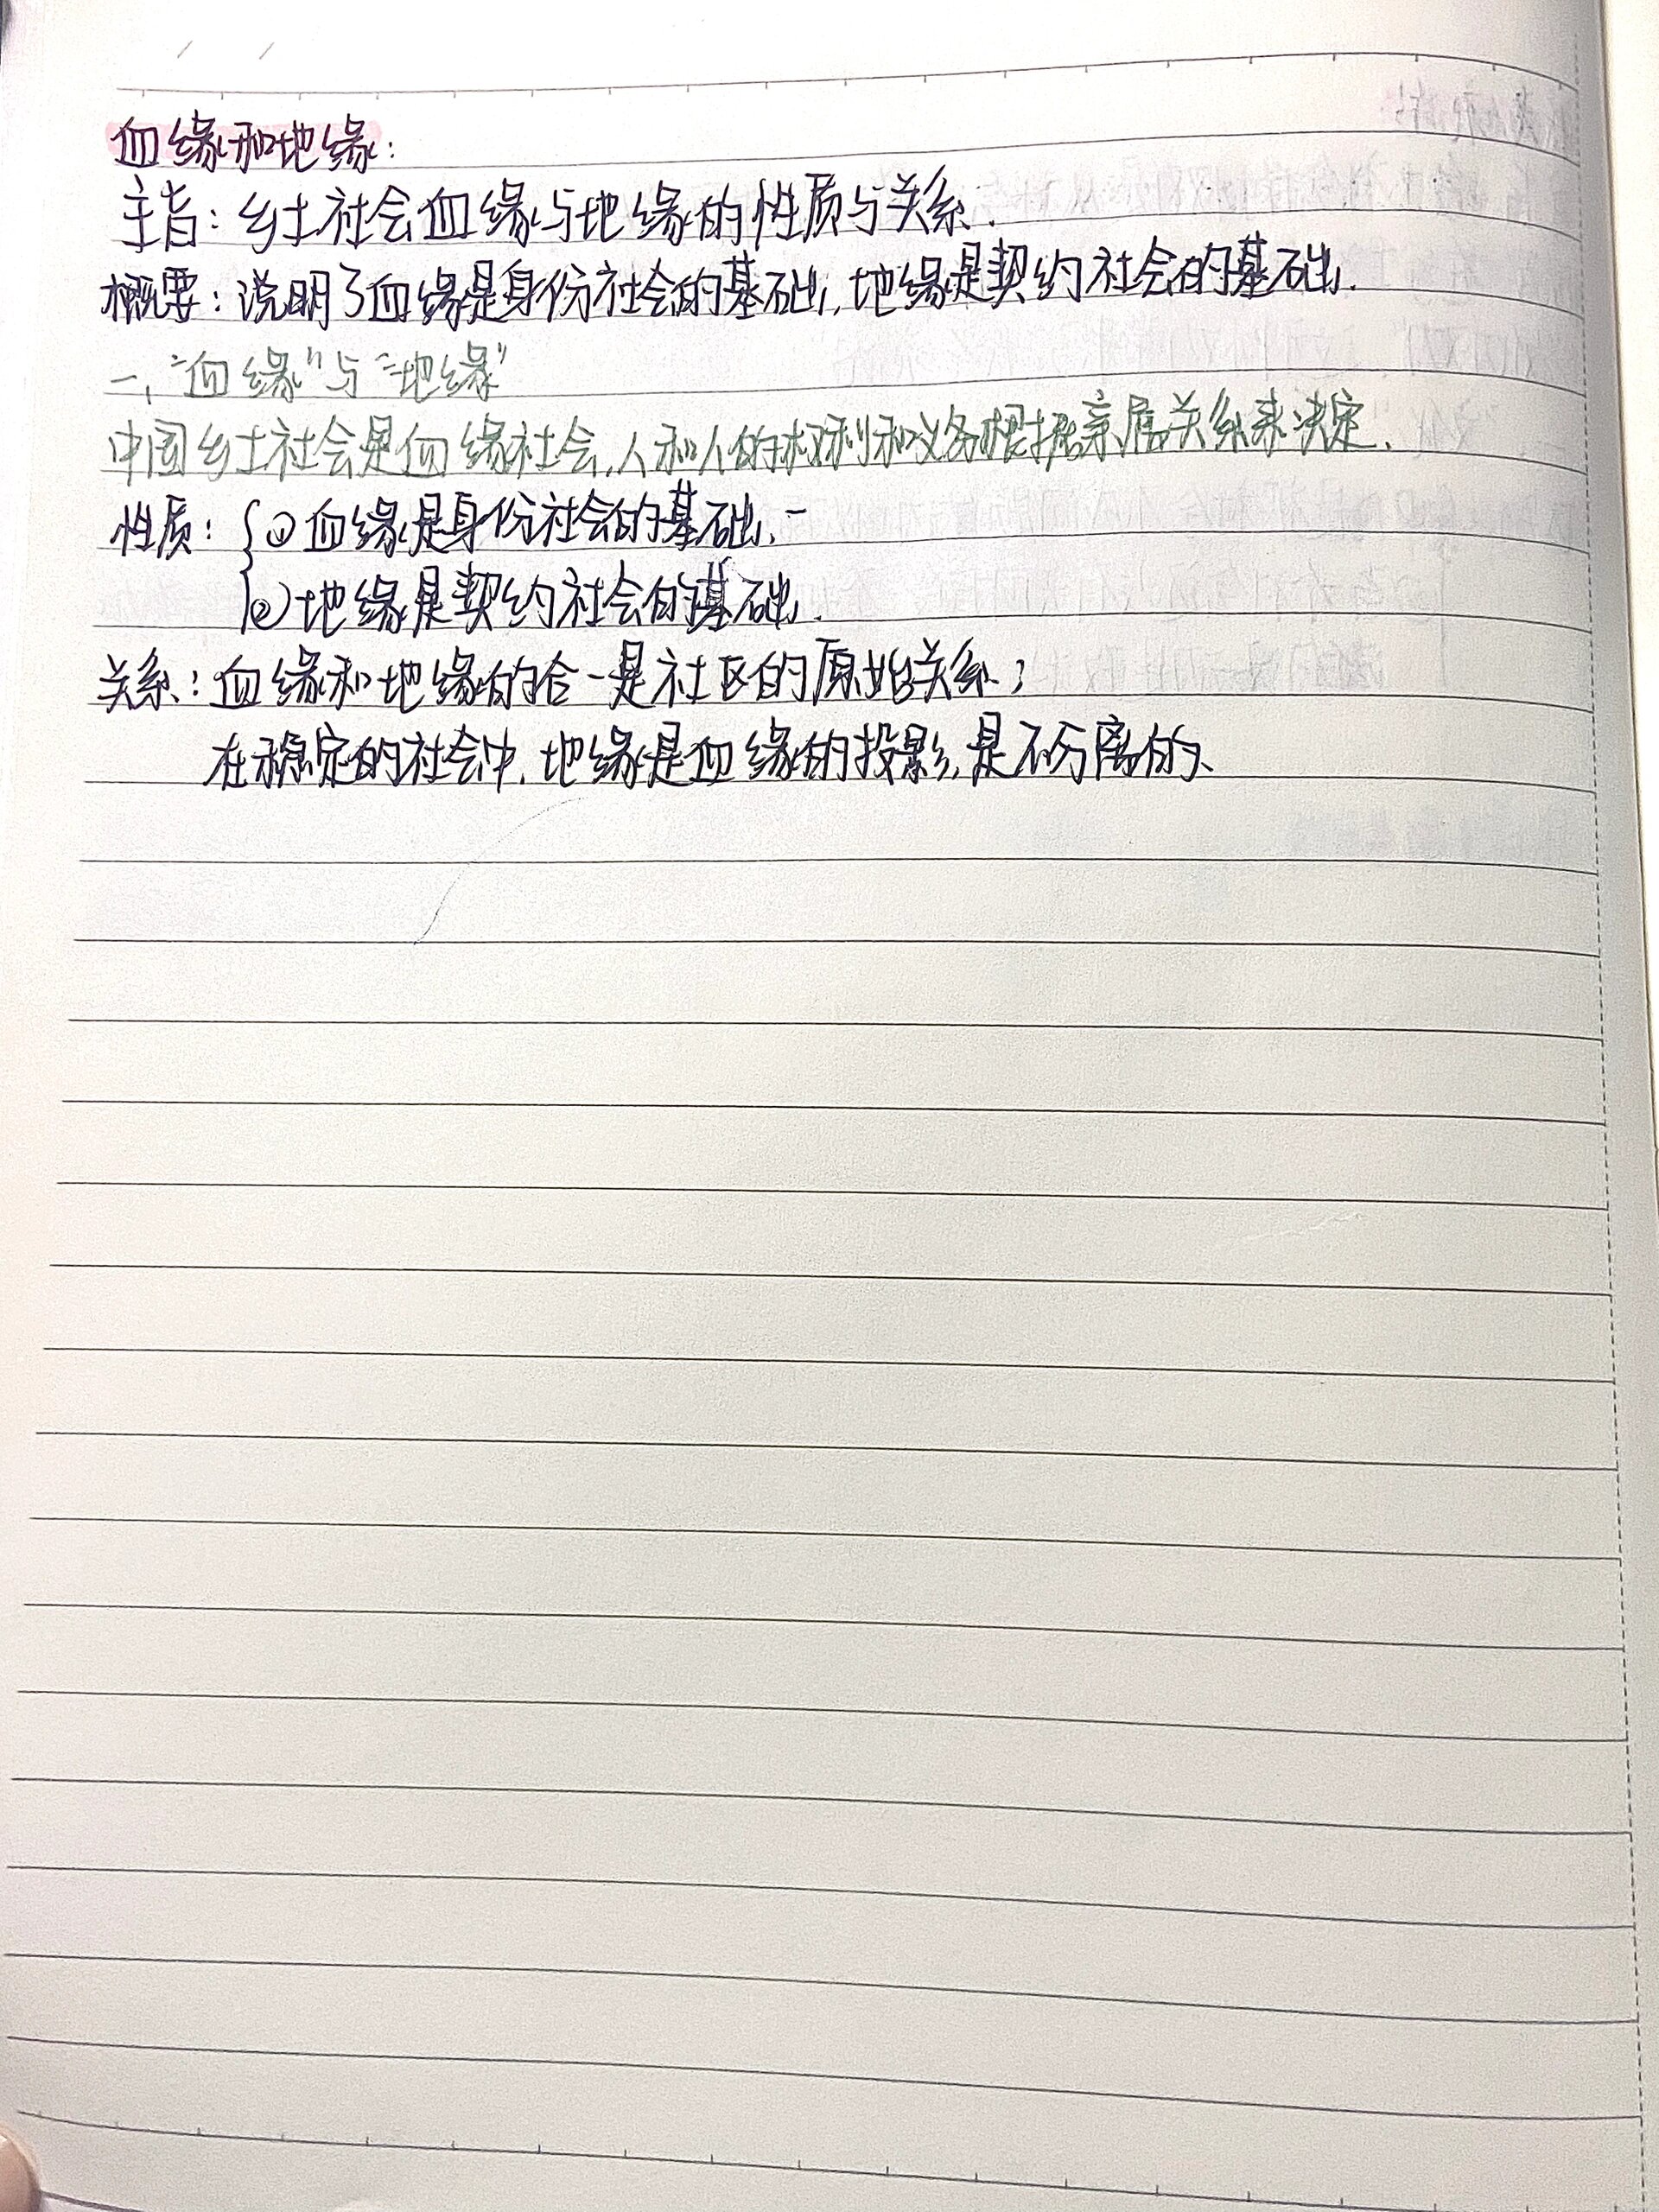 血缘和地缘：
主旨：乡土社会血缘与地缘的性质与关系.
概要：说明了血缘是身份社会的基础，地缘是契约社会的基础.
一，“血缘”与“地缘”
中国乡土社会是血缘社会，人和人的权利和义务根据亲属关系来决定.
性质：①血缘是身份社会的基础.
②地缘是契约社会的基础.
关系：血缘和地缘的合一是社区的原始关系；
在稳定的社会中，地缘是血缘的投影，是不分离的、